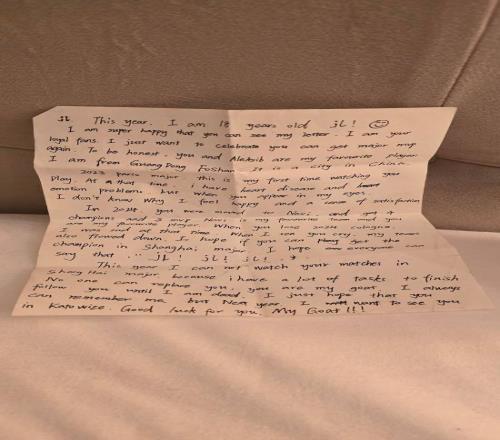 jL. This year. I am 18 years old jL!
I am super happy that you can see my letter. I am your
loyal fans. I just want to celebrate you can get major mvp
again. To be honest. you and Aleksib are my favourite player
I am from GuangDong Foshan. It is a city in China.
2023 Paris major this is my first time watching you
play. At that time. i have heart disease and
emotion problem, but when you appear in my eyes.
I don't know Why I feel happy and a sense of satisfaction
In 2024. you were moved to Navi. and get
champions and mvp. Navi is my favourite team and you
are my favourite player. When you lose 2024 cologne,
I was sad at that time. When I see you cry. my tears
also flowed down. I hope if you can get the
champion in Shanghai major. I hope everyone can
say that ... jL! jL! jL! ..
This year I can not watch your matches in
ShangHai major because i have a lot of tasks to finish
No one can replace you. you are my goat. I always
follow you until I am dead. I just hope that you
can remember me. but Next year I want to see you
in Katowice. Good luck for you. My Goat!!!